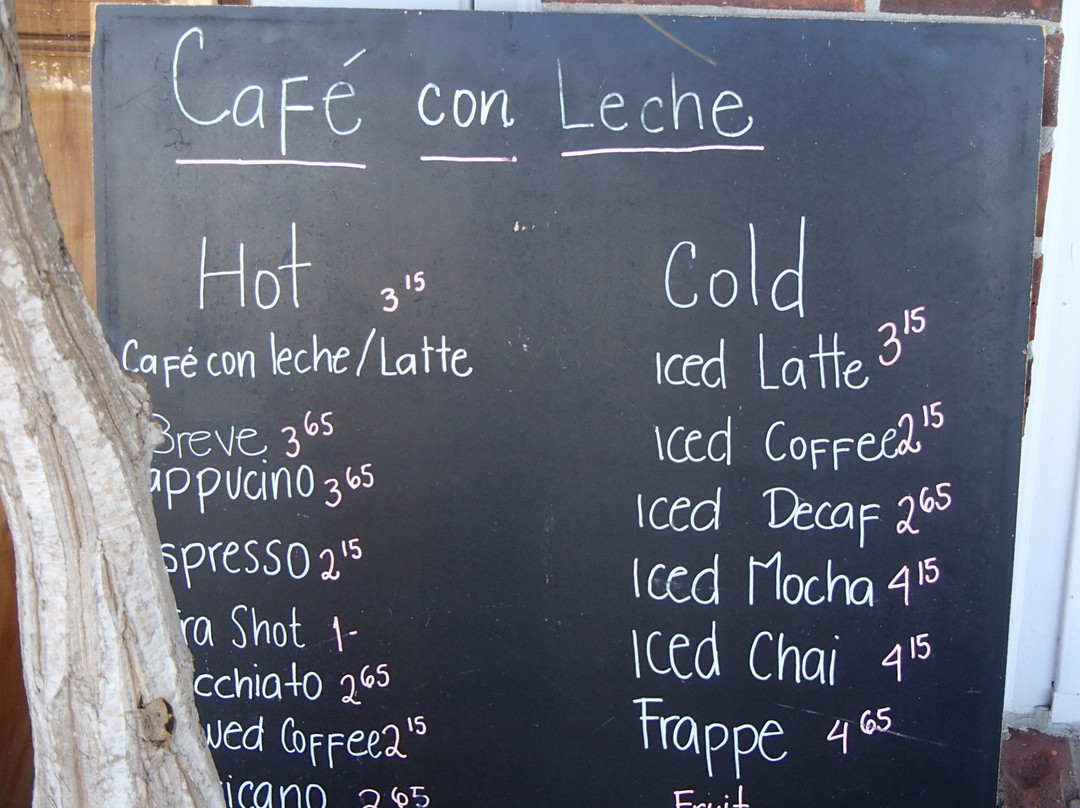 Café con Leche
Hot
3 15
Café con leche/Latte
Breve 3 65
appucino 3 65
spresso 2 15
ra Shot 1-
cchiato 2 65
wed Coffee 2 15
icano 2 65
Cold
Iced Latte 3 15
Iced Coffee 2 15
Iced Decaf 2 65
Iced Mocha 4 15
Iced Chai 4 15
Frappe 4 65
Fruit